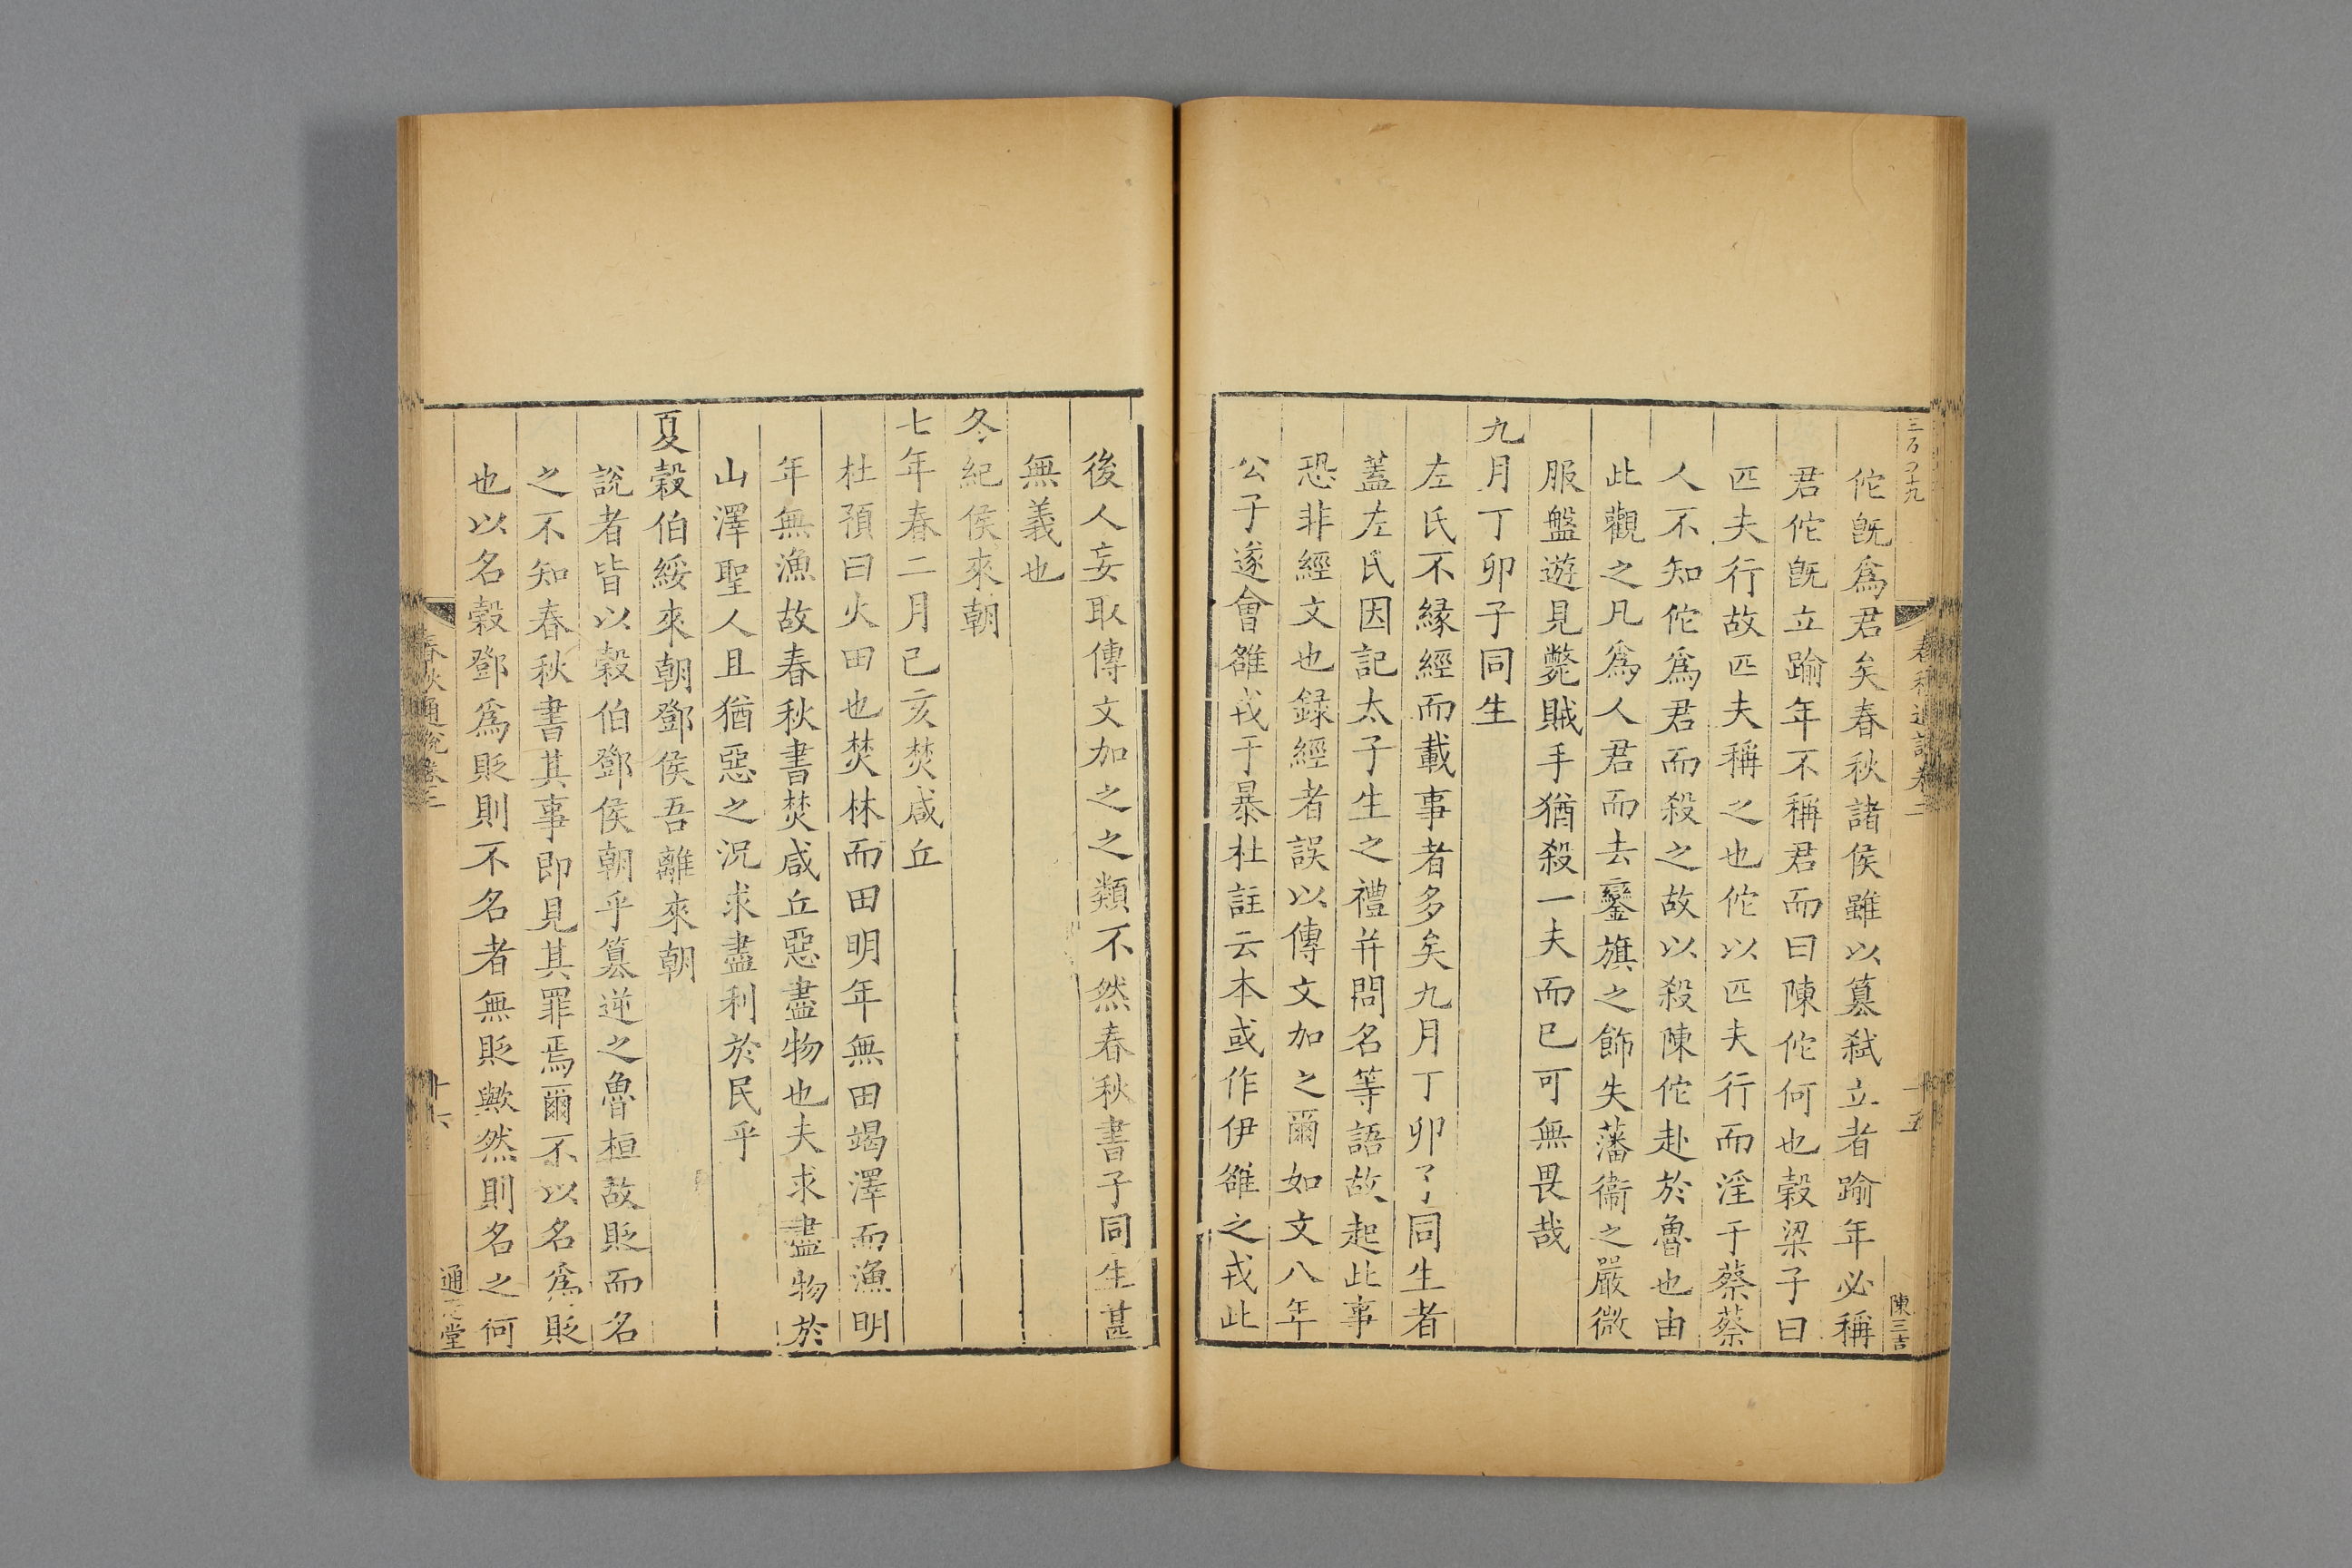 佗旣爲君矣春秋諸侯雖以簒弑立者踰年必稱
君佗旣立踰年不稱君而曰陳佗何也穀梁子曰
匹夫行故匹夫稱之也佗以匹夫行而淫于蔡蔡
人不知佗爲君而殺之故以殺陳佗赴於魯也由
此觀之凡爲人君而去鑾旗之飾失藩衞之嚴微
服盤遊見斃賊手猶殺一夫而已可無畏哉
九月丁卯子同生
左氏不緣經而載事者多矣九月丁卯子同生者
蓋左氏因記太子生之禮并問名等語故起此事
恐非經文也録經者誤以傳文加之爾如文八年
公子遂會雒戎于暴杜註云本或作伊雒之戎此
陳三吉
後人妄取傳文加之之類不然春秋書子同生甚
無義也
冬紀侯來朝
七年春二月己亥焚咸丘
杜預曰火田也焚林而田明年無田竭澤而漁明
年無漁故春秋書焚咸丘惡盡物也夫求盡物於
山澤聖人且猶惡之況求盡利於民乎
夏穀伯綏來朝鄧侯吾離來朝
說者皆以穀伯鄧侯朝乎簒逆之魯桓故貶而名
之不知春秋書其事即見其罪焉爾不以名爲貶
也以名穀鄧爲貶則不名者無貶歟然則名之何
春秋通說卷二
十六
通志堂